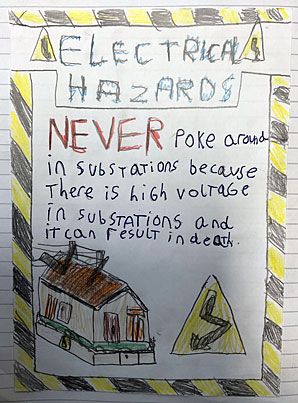 ELECTRICAL
HAZARDS
NEVER Poke around
in substations because
There is high voltage
in subSTATIONS and
it can result in death.